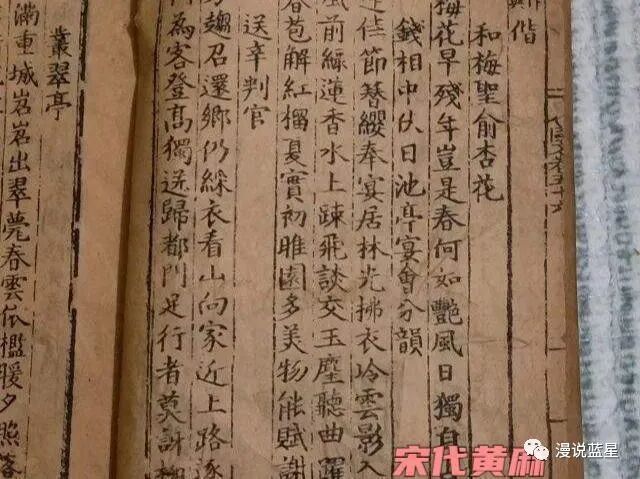 偕
和梅聖俞杏花
梅花早殘年豈是春何如艷風日獨自
錢相中伏日池亭宴會分韻
佳節簪纓奉宴居林光拂衣冷雲影入
風前綠蓮香水上踈飛談交玉麈聽曲躍
春苞解紅榴夏實初睢園多美物能賦謝
送辛判官
趨召還鄉仍綵衣看山向家近上路逐
為客登高獨送歸都門足行者莫訝
叢翠亭
滿重城岧岧出翠甍春雲依檻暖夕照落
宋代黄麻
漫说蓝星